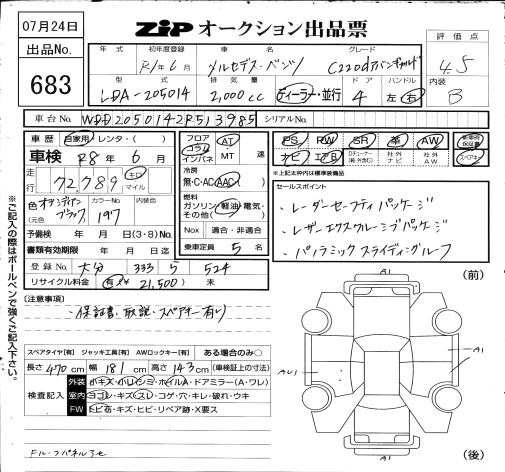 07月24日
ZiP オークション出品票
出品No.
683
評価点
4.5
内装
B
年式 初年度登録 車名 グレード
R1年6月 メルセデス・ベンツ C220dアバンギャルド
型式 排気量 ドア ハンドル
LDA-205014 2,000cc ディーラー・並行 4 左 右
車台No. WDD2050142R513985 シリアルNo.
車歴 自家用・レンタ・( )
車検 R8年6月
走行 72,789 キロ マイル
色 オブシディアンブラック カラーNo. 197
(元色)
予備検 年 月 日(3・8)No.
書類有効期限 年 月 日迄
登録No. 大分 333 ら 524
リサイクル料金 有(¥21,500) 未
フロア コラム インパネ AT MT 速
冷房 無・C・AC・AAC( )
燃料 ガソリン・軽油・電気・その他( )
Nox 適合・非適合
乗車定員 5名
PS PW SR 革 AW 新車時保証書
ナビ エアB 社外ナビ 社外AW スペアキー
※上記太枠内は標準装備品
セールスポイント
・レーダーセーフティパッケージ
・レザーエクスクルーシブパッケージ
・パノラミックスライディングルーフ
(注意事項)
・保証書・取説・スペアキー有り
スペアタイヤ[有] ジャッキ工具[有] AWロックキー[有] ある場合のみ○
長さ470cm 幅181cm 高さ143cm (車検証上の寸法)
検査記入
外装 小キズ・小凹・シミ・ホイルA・ドアミラー(A・ワレ)
室内 ヨゴレ・キズ・スレ・コゲ・穴・キレ・破れ・ウキ
FW トビ石・キズ・ヒビ・リペア跡・X要ス
※ご記入の際はボールペンで強くご記入下さい。
(前)
A1
AU1
A1
A1
(後)